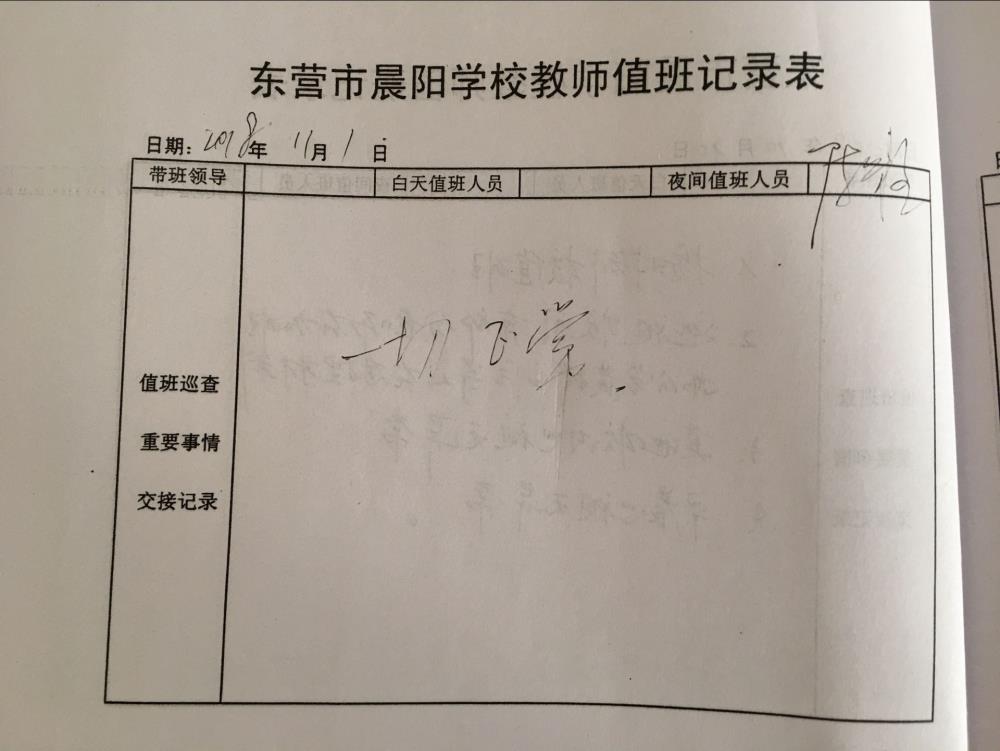 东营市晨阳学校教师值班记录表
日期: 2018年 11月 1 日
带班领导 白天值班人员 夜间值班人员
一切正常.
值班巡查
重要事情
交接记录